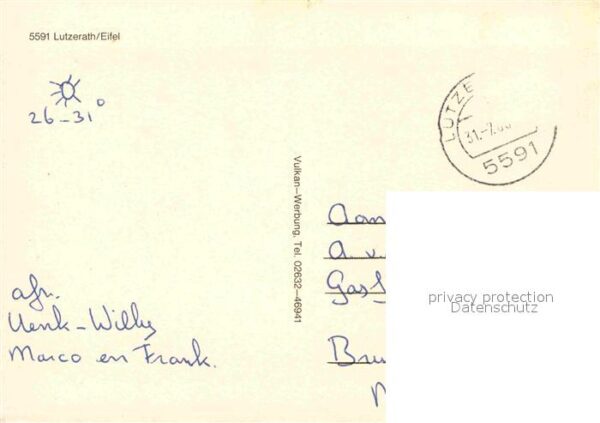 5591 Lutzerath/Eifel
26-31°
LUTZE
31.-7.
5591
Vulkan-Werbung, Tel. 02632-46941
Aan
A.v.
Gast
Bru
afz.
Henk-Willy
Marco en Frank.
privacy protection
Datenschutz